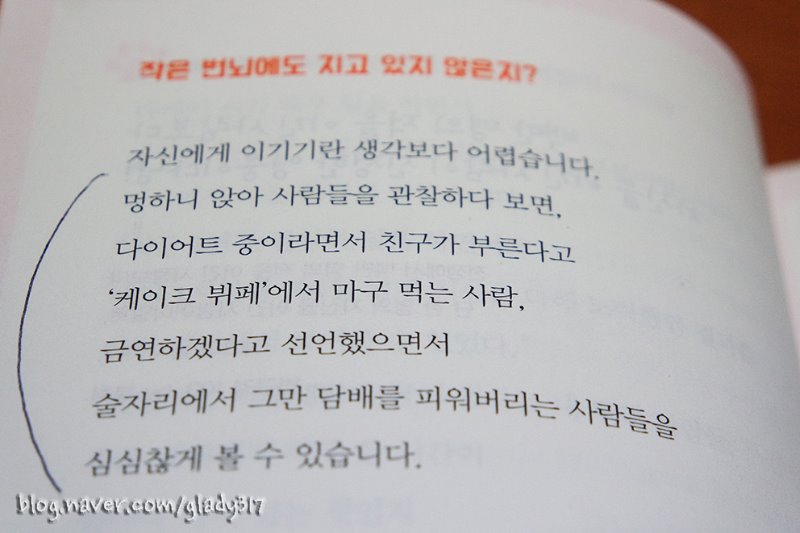 작은 번뇌에도 지고 있지 않은지?
자신에게 이기기란 생각보다 어렵습니다.
멍하니 앉아 사람들을 관찰하다 보면,
다이어트 중이라면서 친구가 부른다고
‘케이크 뷔페’에서 마구 먹는 사람,
금연하겠다고 선언했으면서
술자리에서 그만 담배를 피워버리는 사람들을
심심찮게 볼 수 있습니다.
blog.naver.com/glady317